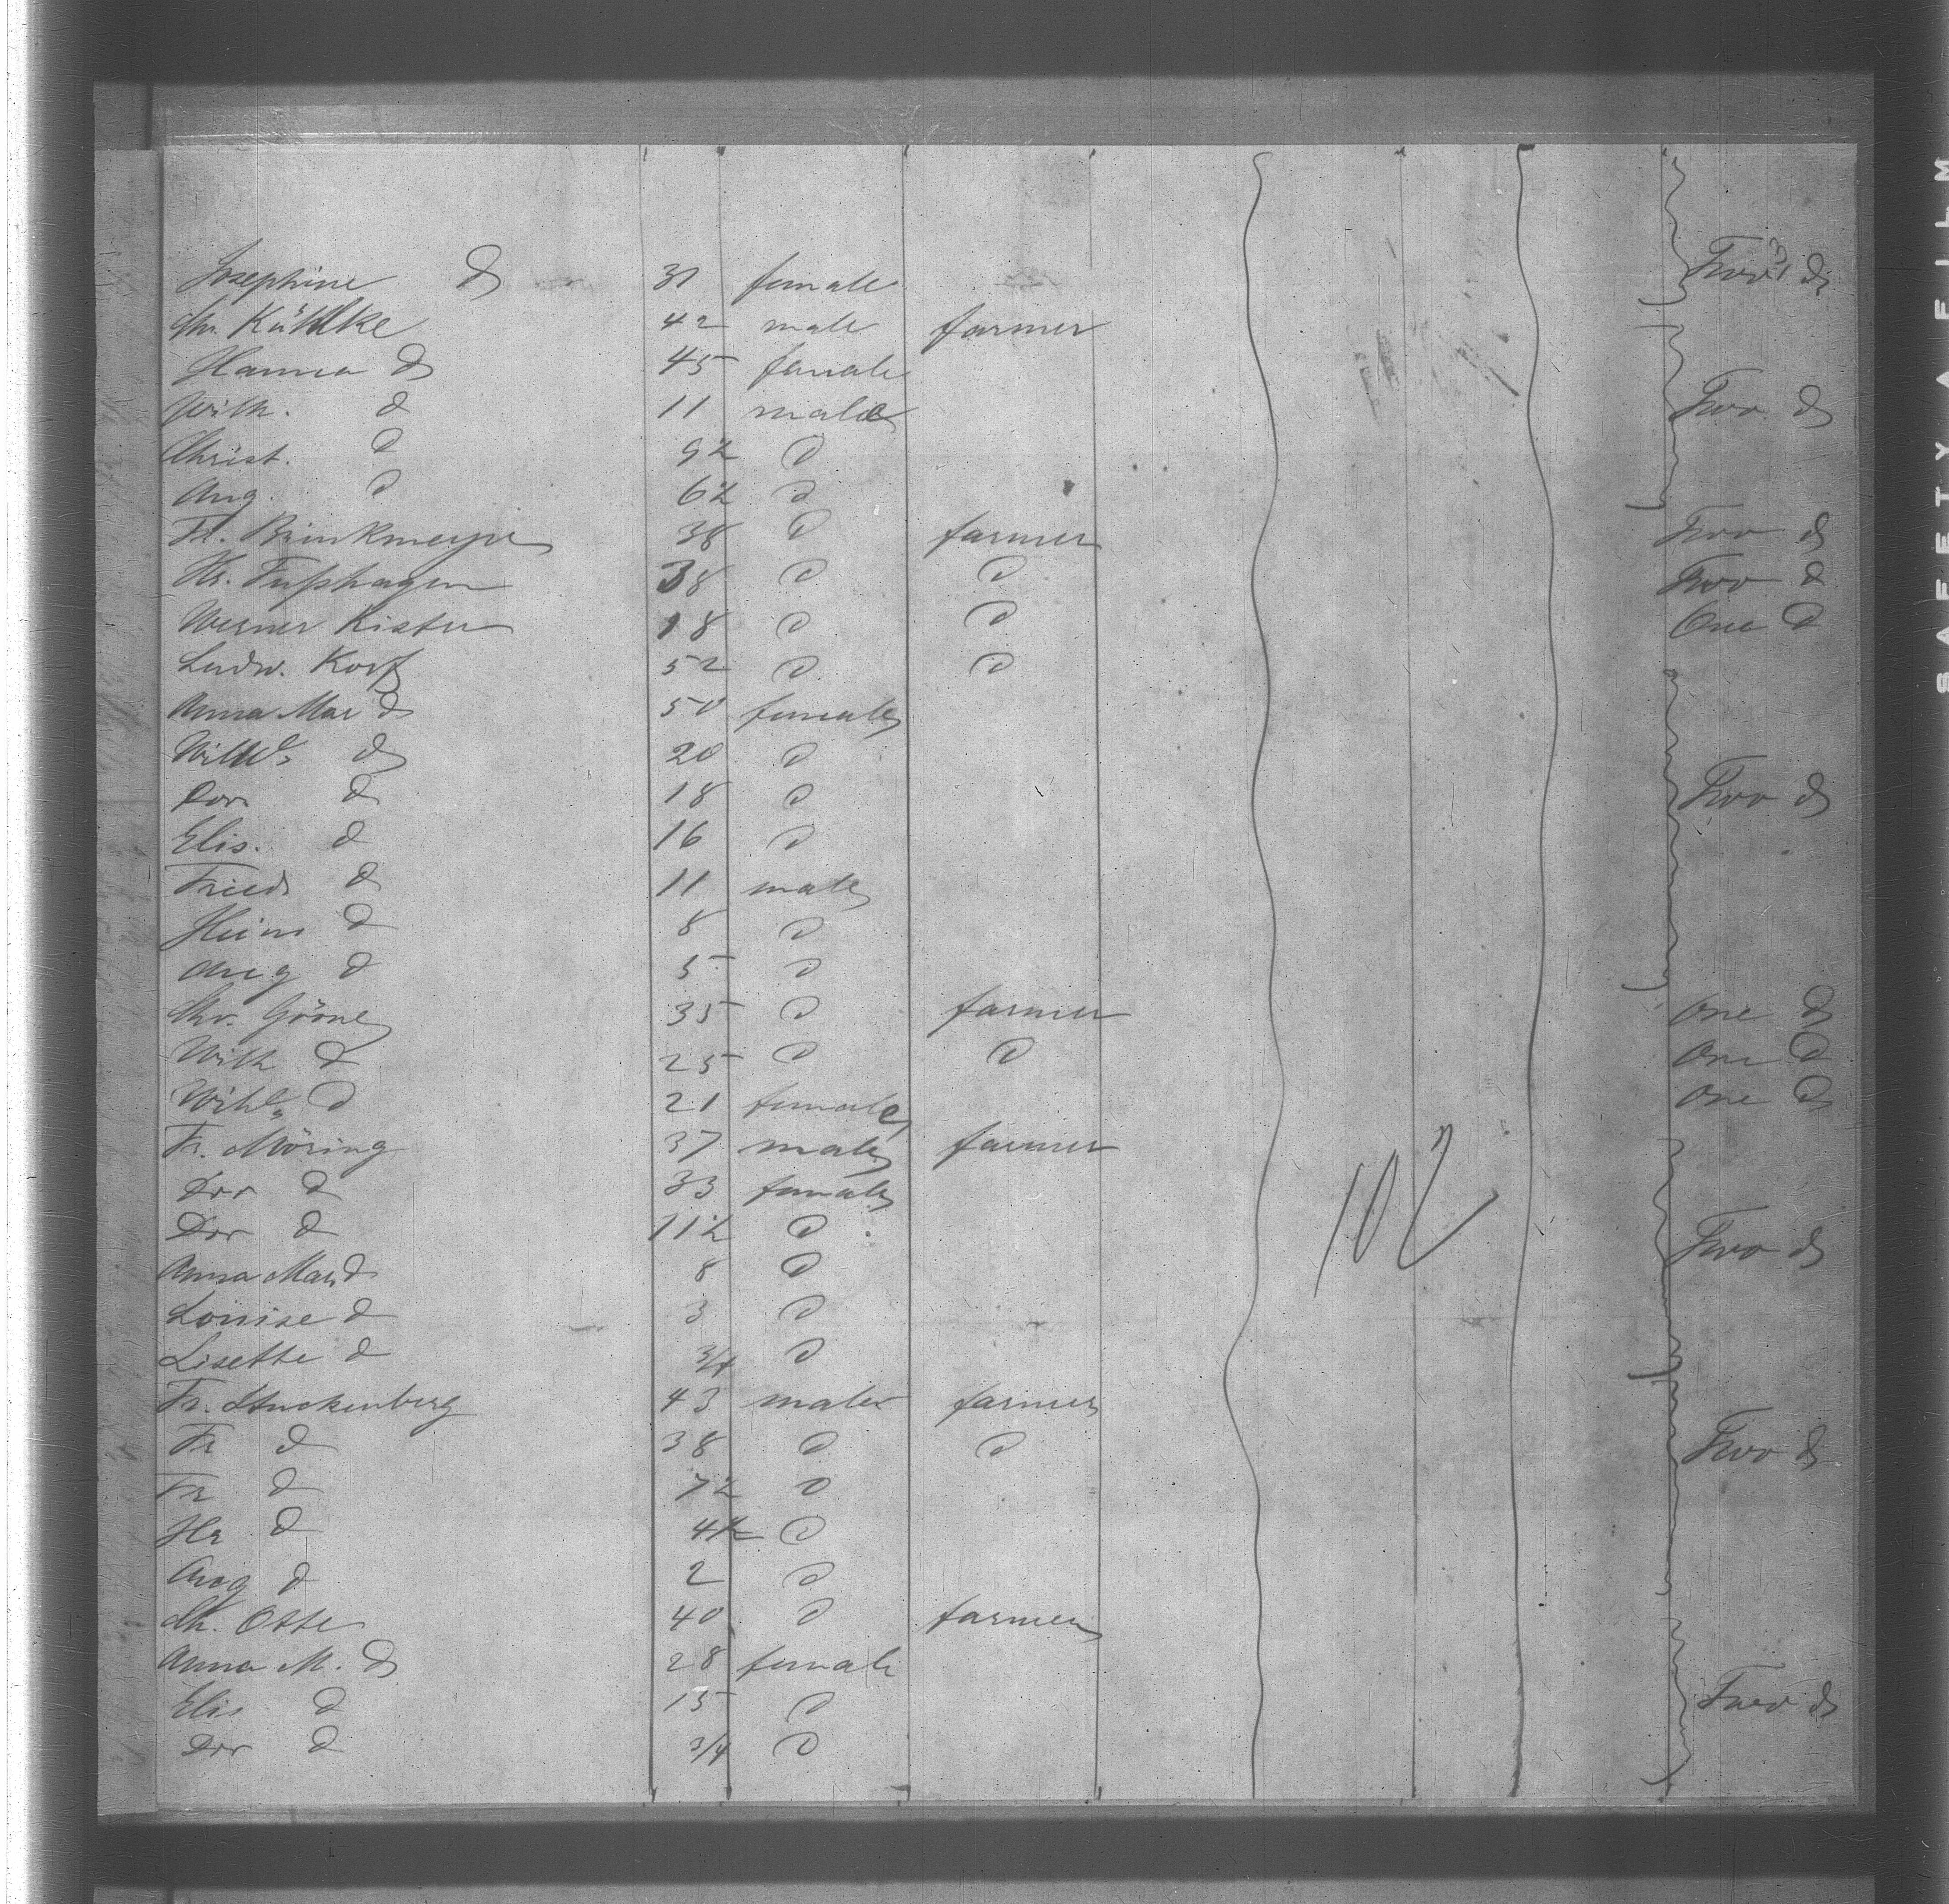 Josephine do 31 female Two do
Chr. Kühlke 42 male farmer
Hanna do 45 female
Wilh. do 11 male Two do
Christ. do 9½ do
Aug. do 6½ do
Fr. Brinkmeyer 38 do farmer Two do
Hr. Fußhagen 38 do do Two do
Werner Kister 18 do do One do
Ludw. Korf 52 do do
Anna Mar do 50 female
Wilhe. do 20 do
Dor. do 18 do Two do
Elis. do 16 do
Friedr do 11 male
Heinr do 8 do
Aug do 5 do
Chr. Gröne 35 do farmer One do
Wilh do 25 do do One do
Wihe. do 21 female One do
Fr. Möring 37 male farmer
Dor do 33 female
Dor do 11½ do Two do
Anna Mar. do 8 do
Louise do 3 do
Lisette do 3/4 do
102
Fr. Stuckenberg 43 male farmer
Fr do 38 do do Two do
Fr do 7½ do
Hr do 4½ do
Aug do 2 do
Ch. Otte 40 do farmer
Anna M. do 28 female
Elis do 15 do Two do
Dor do 3/4 do
SAFETY FILM